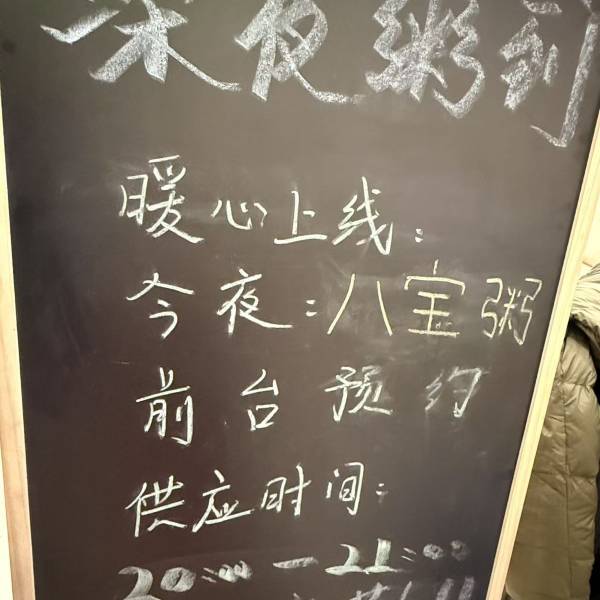 深夜粥到
暖心上线:
今夜:八宝粥
前台预约
供应时间:
20:00-21:00